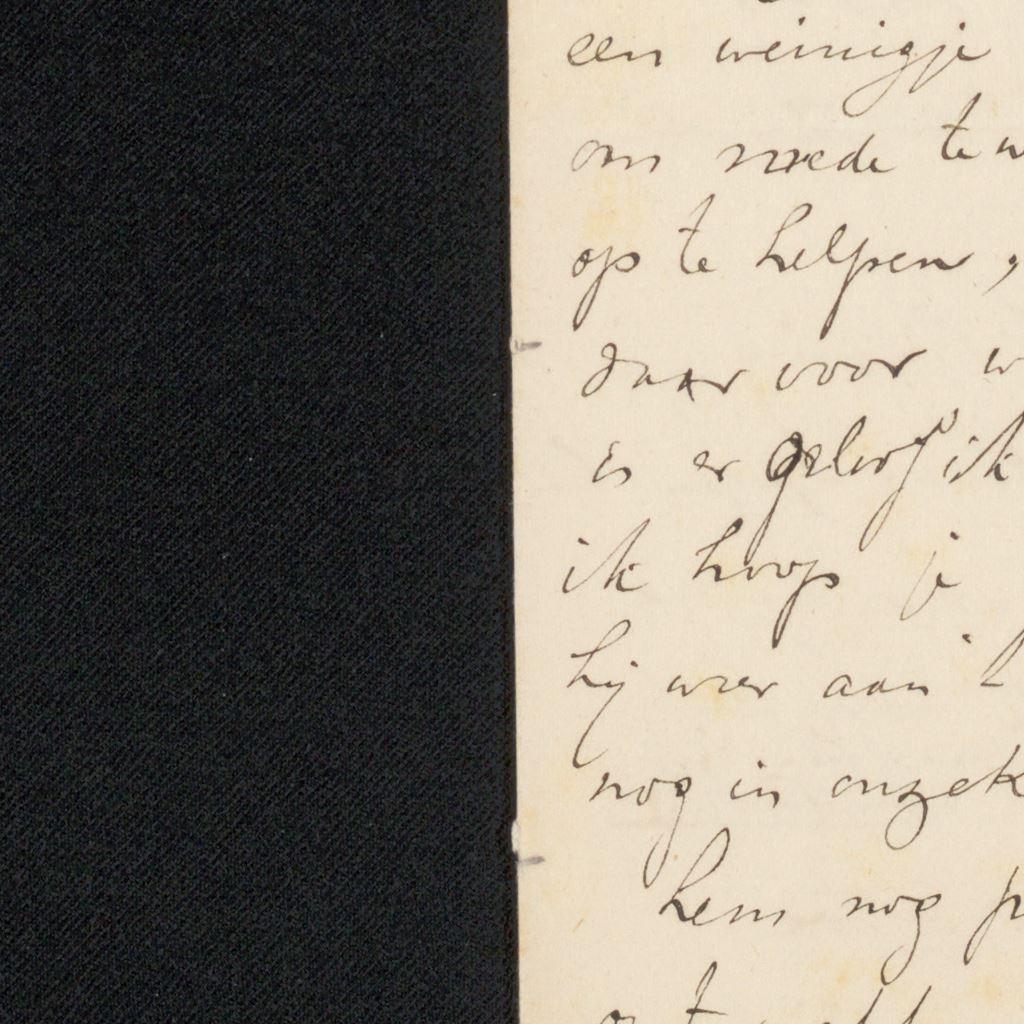 een weinigje
om mede te w
op te helpen,
daar voor w
is er geloof ik
ik hoop je
hij weer aan
nog in onzek
hem nog